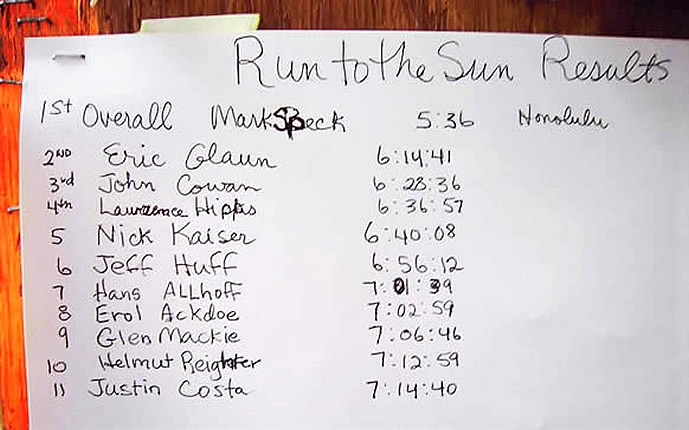 Run to the Sun Results
1st Overall Mark Speck 5:36 Honolulu
2ND Eric Glaun 6:14:41
3rd John Cowan 6:28:36
4th Lawrence Hipps 6:36:57
5 Nick Kaiser 6:40:08
6 Jeff Huff 6:56:12
7 Hans ALLhoff 7:01:39
8 Erol Ackdoe 7:02:59
9 Glen Mackie 7:06:46
10 Helmut 7:12:59
11 Justin Costa 7:14:40